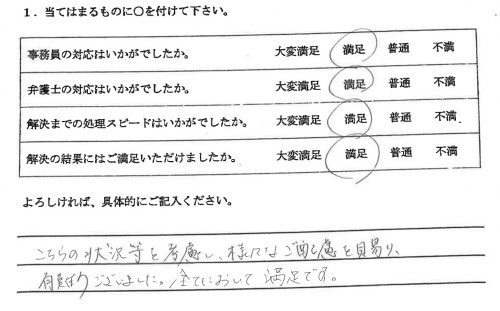 1．当てはまるものに○を付けて下さい。
事務員の対応はいかがでしたか。 大変満足 満足 普通 不満
弁護士の対応はいかがでしたか。 大変満足 満足 普通 不満
解決までの処理スピードはいかがでしたか。 大変満足 満足 普通 不満
解決の結果にはご満足いただけましたか。 大変満足 満足 普通 不満
よろしければ、具体的にご記入ください。
こちらの状況等を考慮し、様々なご配慮を賜り、
有難うございました。全てにおいて満足です。